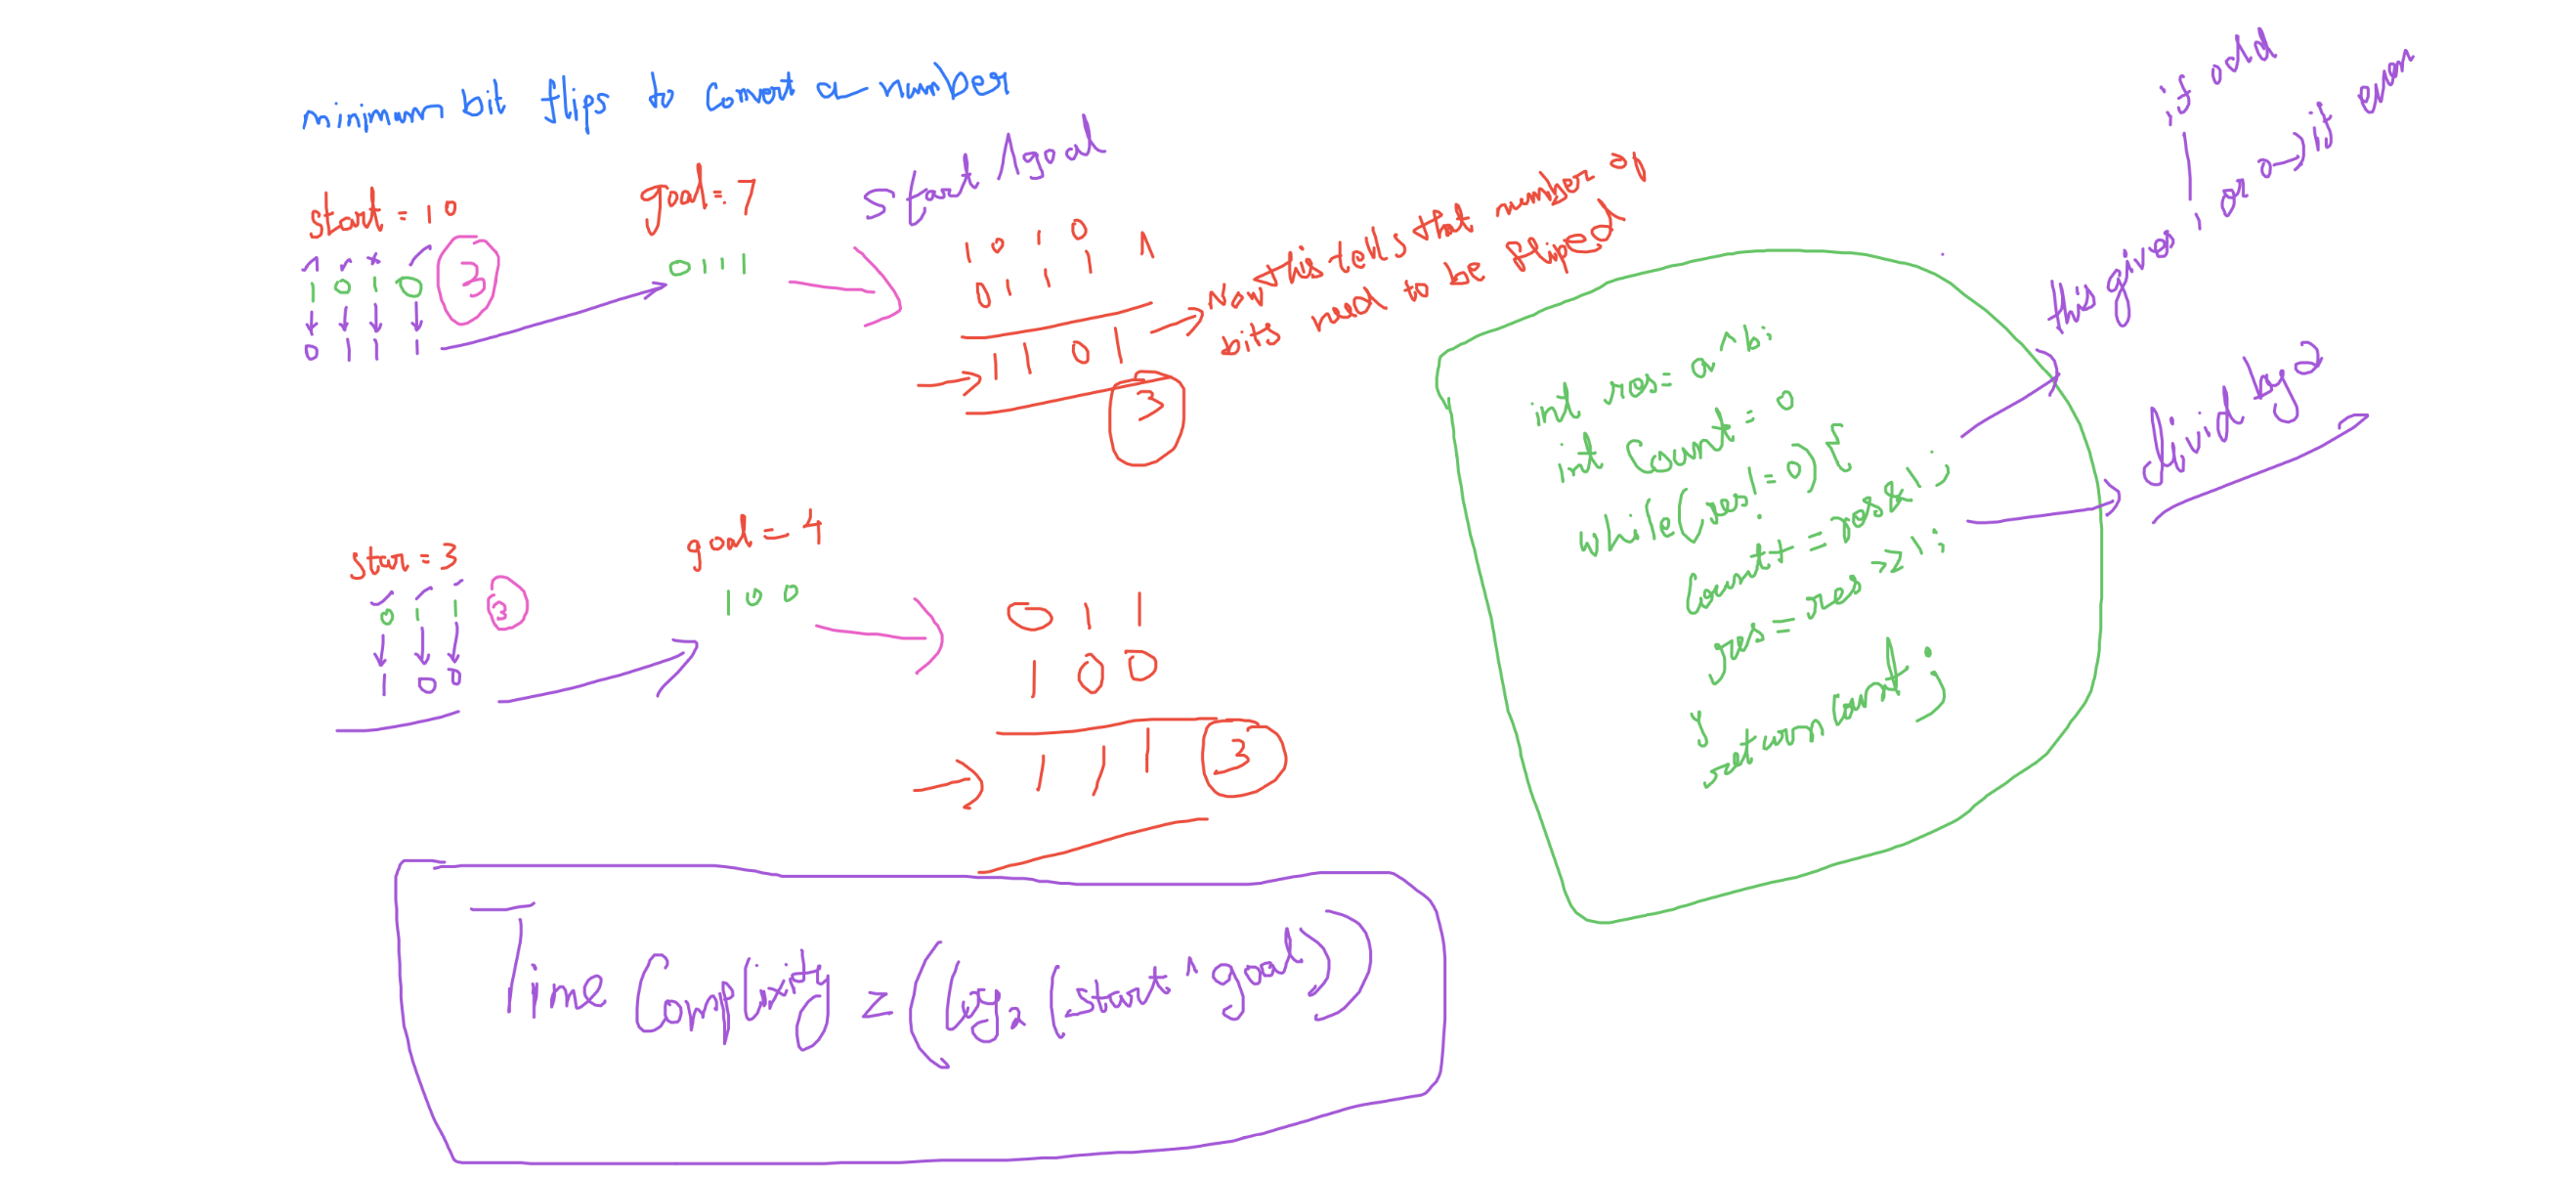 minimum bit flips to convert a number
start = 10
1 0 1 0
3
0 1 1 1
goal = 7
0111
start ^ goal
1 0 1 0
0 1 1 1 ^
1 1 0 1
3
Now this tells that number of
bits need to be fliped
star = 3
0 1 1
3
1 0 0
goal = 4
1 0 0
0 1 1
1 0 0
1 1 1
3
int res = a ^ b;
int Count = 0
while(res != 0) {
Count += res & 1;
res = res >> 1;
}
return Count;
this gives 1 or 0 → if even
if odd
divid by 2
Time Complixity = (log2 (start ^ goal))